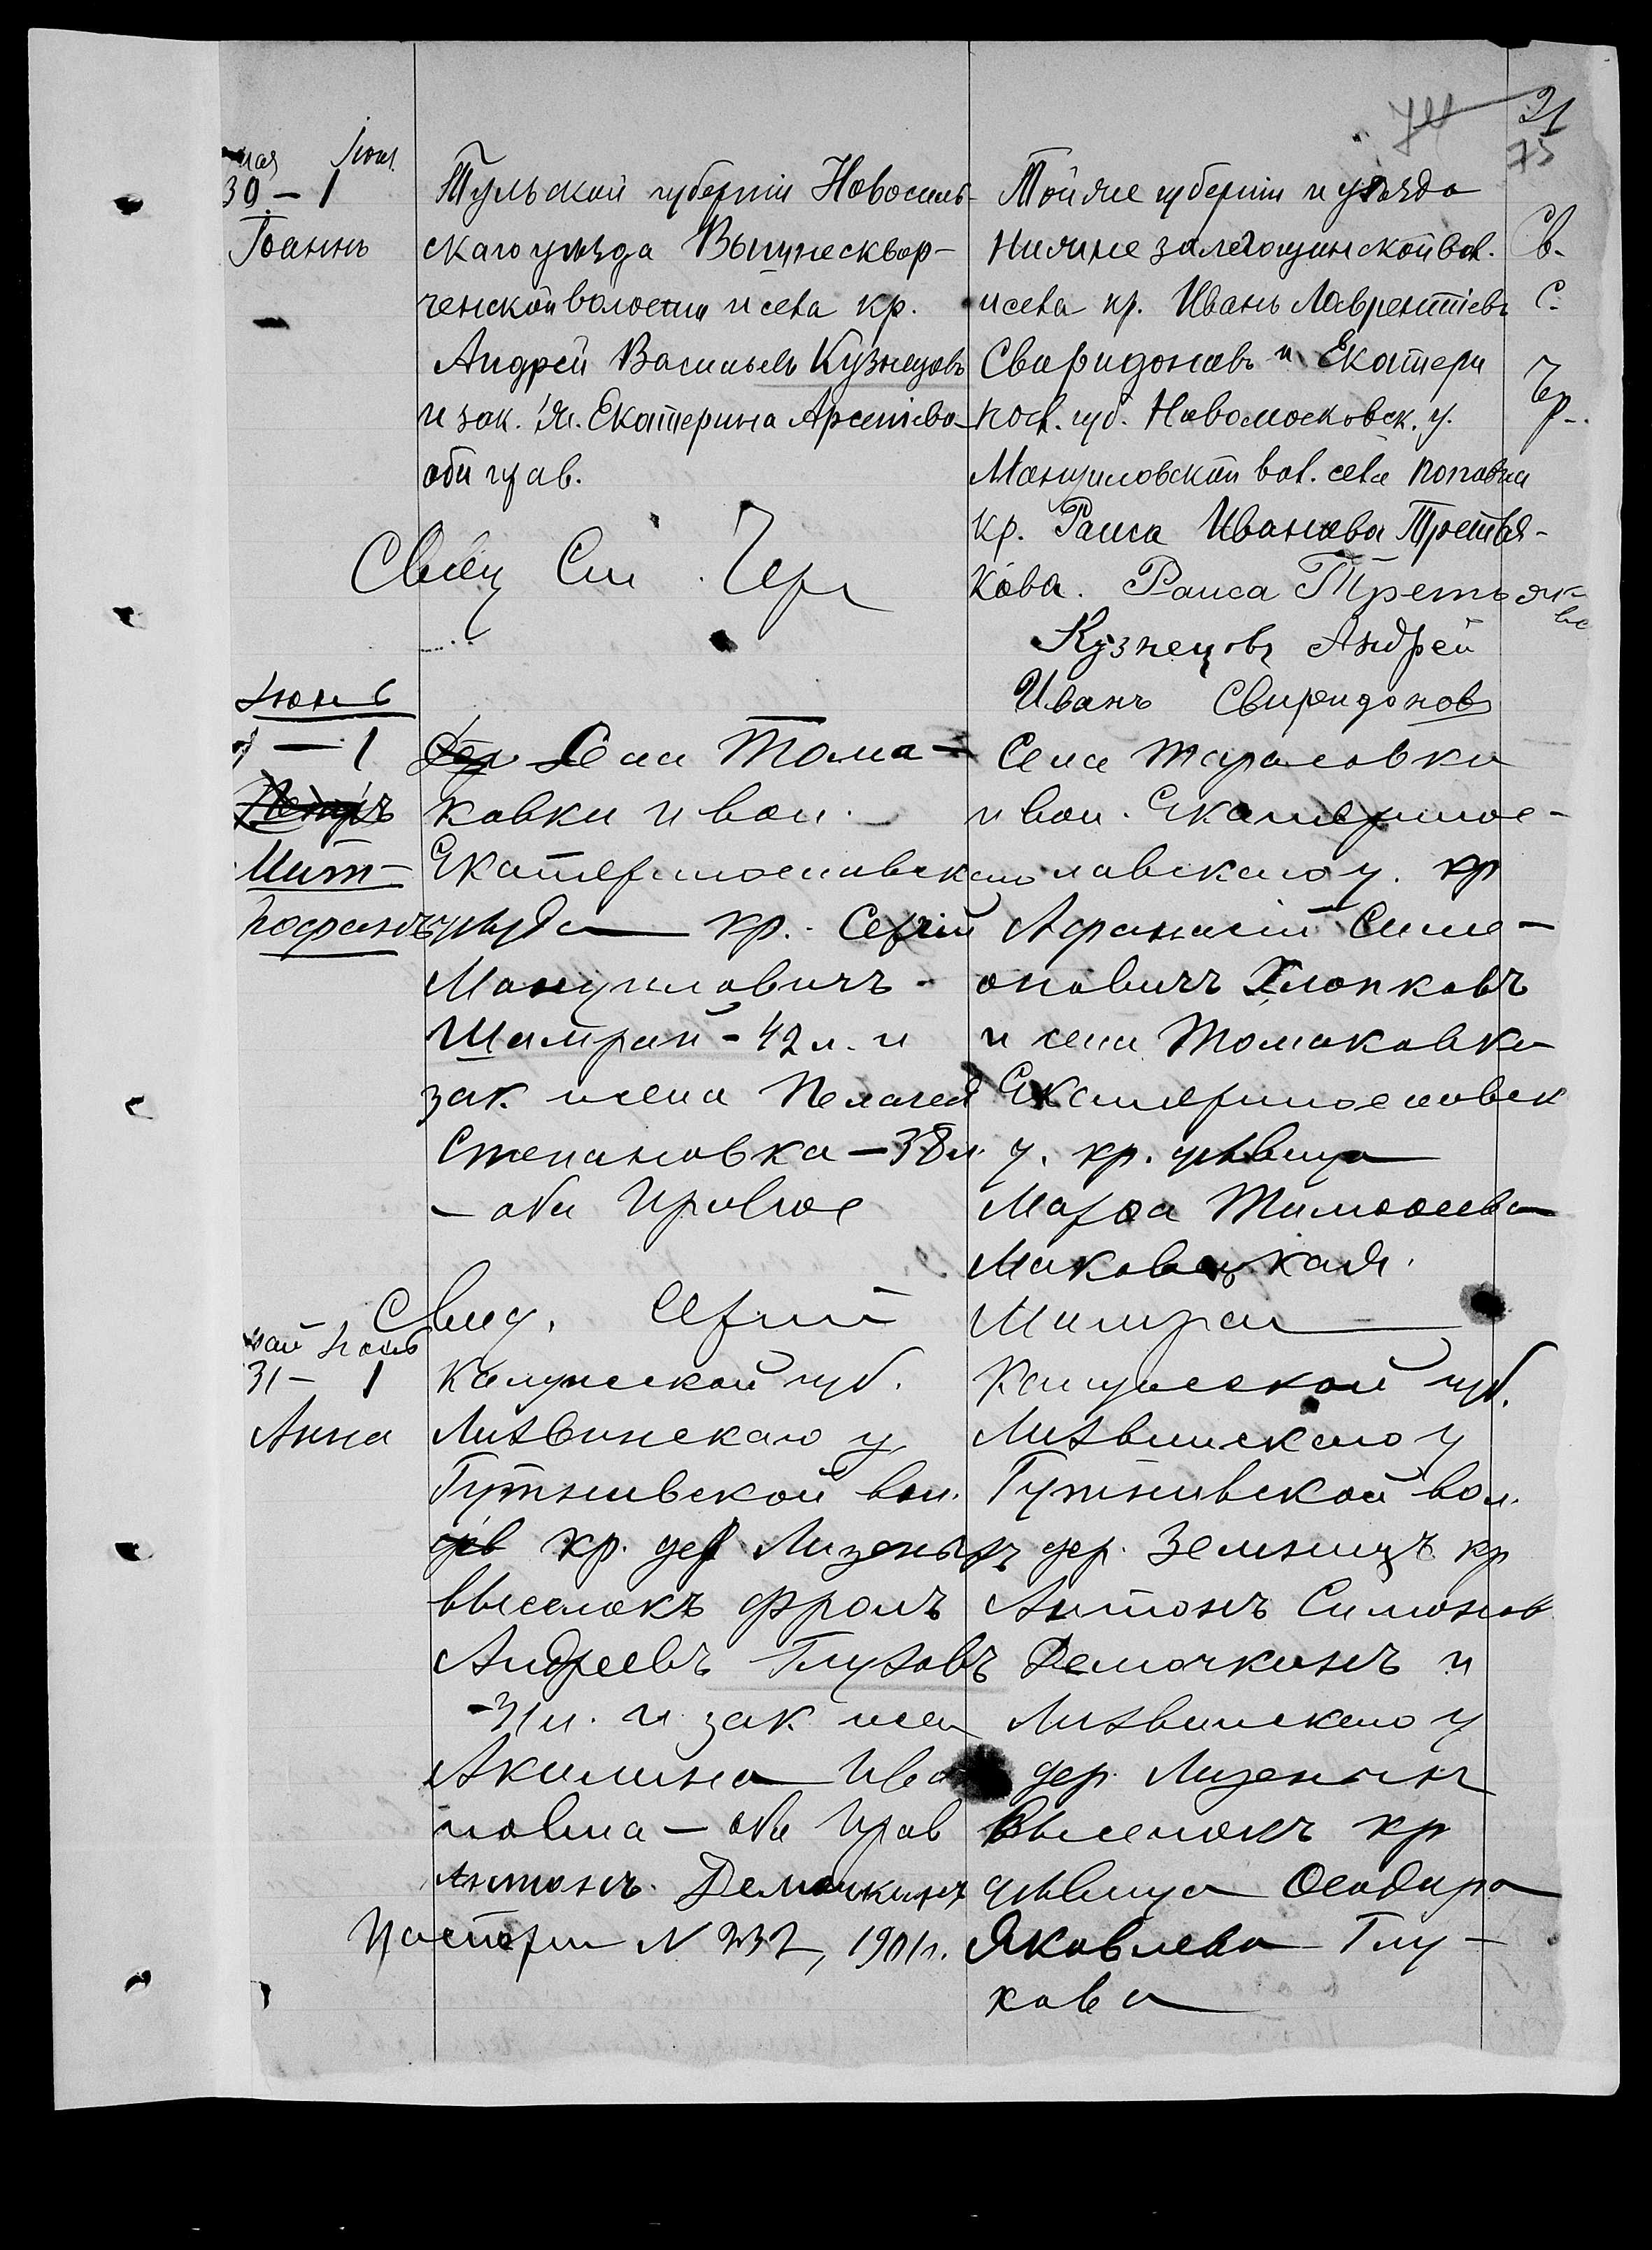 21
75
мая Іюн.
30 - 1
Іоаннъ
Тульской губерніи Новосиль-
скаго уѣзда Вышнесквор-
ченской волости и села кр.
Андрей Васильевъ Кузнецовъ
и зак. ж. Екатерина Арсеніева
оба прав.
Той же губерніи и уѣзда
Нижне залегощинской вол.
и села кр. Иванъ Лаврентіевъ
Свиридоновъ и Екатери
носл. губ. Новомосковск. у.
Мануиловской вол. села Поповки
кр. Раиса Иванова Третья-
кова. Раиса Третьяко
ва
Кузнецовъ Андрей
Иванъ Свиридоновъ
Св.
С.
Чр.
Свящ Сп. Чер
Іюнь
1 - 1
Петръ
Мит-
рофанъ
Села Тома-
ковки и вол.
Екатеринославскаго
уѣзда кр. Сергій
Мануиловичъ
Шамрай - 42 л. и
зак. жена Пелагея
Степановна - 38 л.
- оба православ
Села Тарасовки
и вол. Екатерино-
славскаго у. кр
Афанасій Симе-
оновичъ Хлопковъ
и села Томаковки
Екатеринославск
у. кр. дѣвица
Марѳа Тимоѳеева
Маковецкая.
Свид. Сергій Шамрай
май Іюнь
31 - 1
Анна
Калужской губ.
Лихвинскаго у
Гутнивской вол.
кр. дер Лизенкъ
выселокъ Фролъ
Андреевъ Глуховъ
- 31 л. и зак жена
Акилина Ива
новна - оба прав
Антонъ Демочкинъ
Паспорт N 232, 1901 г.
Калужской губ.
Лихвинскаго у
Гутнивской вол.
дер. Земницъ кр
Антонъ Симонов
Демочкинъ и
Лихвинскаго у
дер. Лизенкъ
Выселокъ кр
дѣвица Ѳеодора
Яковлева Глу-
хова